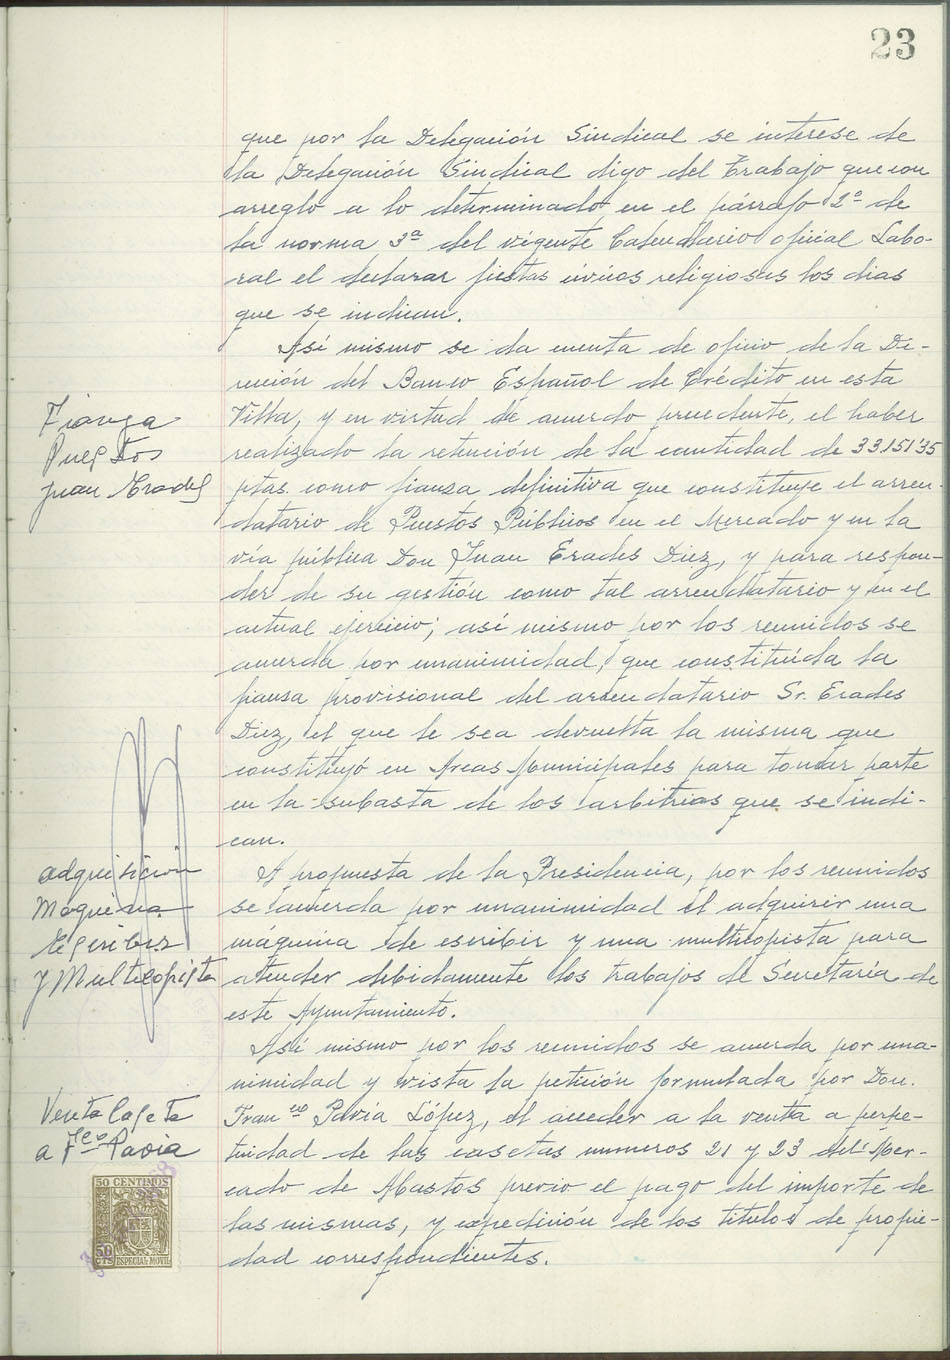 23
que por la Delegación Sindical se interese de
la Delegación Sindical digo del Trabajo que con
arreglo a lo determinado en el párrafo 2º de
la norma 3ª del vigente Calendario oficial Labo-
ral el declarar fiestas cívicos religiosas los dias
que se indican.
Así mismo se da cuenta de oficio de la Di-
rección del Banco Español de Crédito en esta
Villa, y en virtud de acuerdo precedente, el haber
Fianza
Puestos
Juan Erades
realizado la retención de la cantidad de 33.151'35
ptas. como fianza definitiva que constituye el arren-
datario de Puestos Públicos en el Mercado y en la
vía pública Don Juan Erades Diez, y para respon-
der de su gestión como tal arrendatario y en el
actual ejercicio; así mismo por los reunidos se
acuerda por unanimidad, que constituída la
fianza provisional del arrendatario Sr. Erades
Diez, el que le sea devuelta la misma que
constituyó en Arcas Municipales para tomar parte
en la subasta de los arbitrios que se indi-
can.
adquisición
Maquina
Escribir
y Multicopista
A propuesta de la Presidencia, por los reunidos
se acuerda por unanimidad el adquirir una
máquina de escribir y una multicopista para
atender debidamente los trabajos de Secretaría de
este Ayuntamiento.
Así mismo por los reunidos se acuerda por una-
nimidad y vista la petición formulada por Don.
Venta Caseta
a Fco Pavia
Franco Pavía López, el acceder a la venta a perpe-
tuidad de las casetas numeros 21 y 23 del Mer-
cado de Abastos previo el pago del importe de
las mismas, y expedición de los titulos de propie-
dad correspondientes.
50 CENTIMOS
50
CTS
ESPECIAL MOVIL